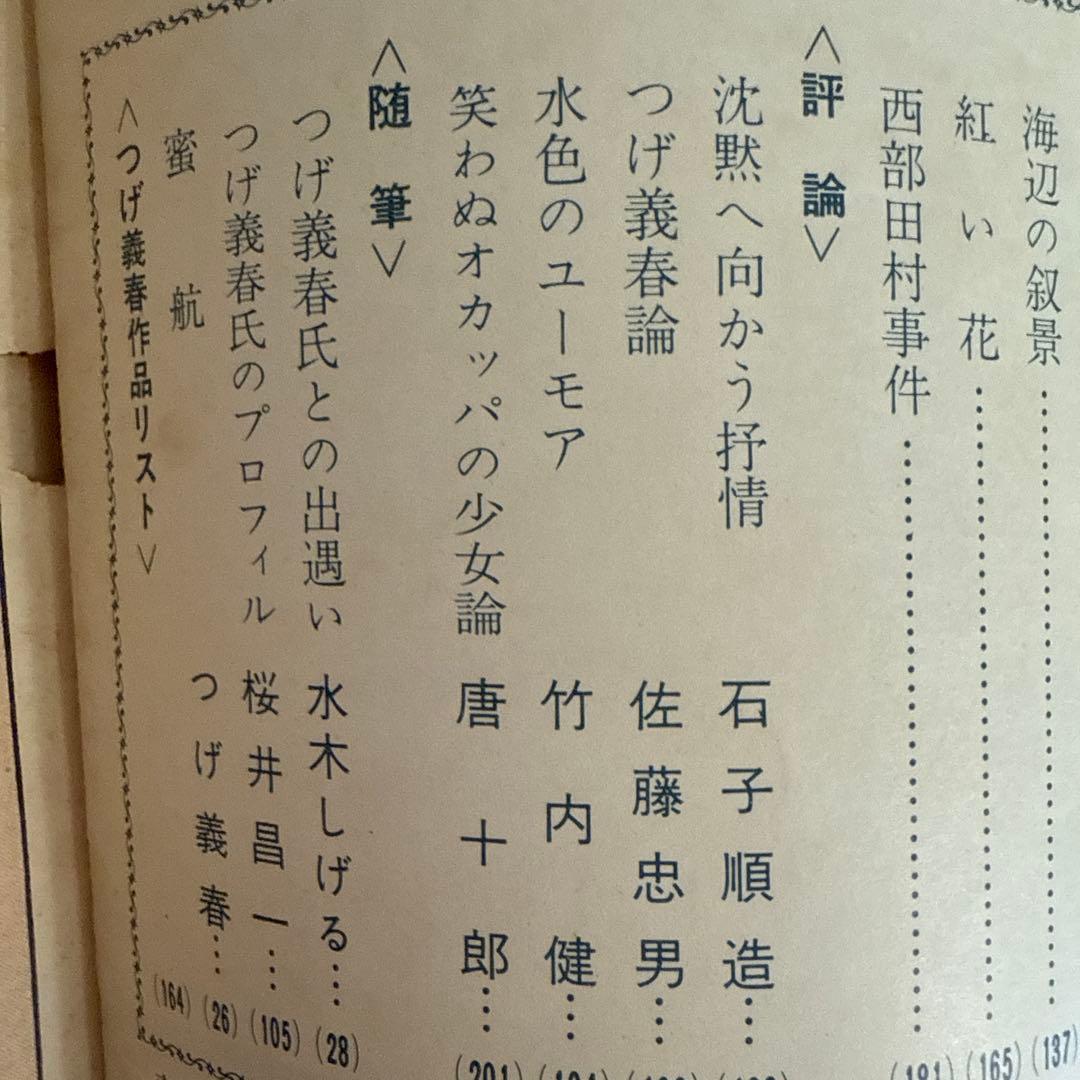 海辺の叙景……………………(137)
紅い花……………………(165)
西部田村事件……………………(181)
<評論>
沈黙へ向かう抒情 石子順造…
つげ義春論 佐藤忠男…
水色のユーモア 竹内健…
笑わぬオカッパの少女論 唐十郎…(201)
<随筆>
つげ義春氏との出遇い 水木しげる…(28)
つげ義春氏のプロフィル 桜井昌一…(105)
蜜航 つげ義春…(26)
<つげ義春作品リスト> (164)